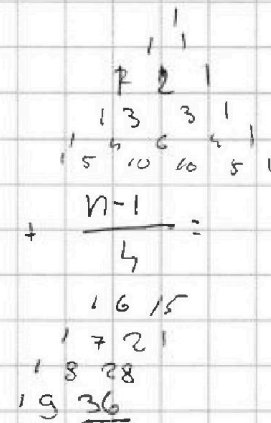 1
1 1
1 2 1
1 3 3 1
1 4 6 4 1
1 5 10 10 5 1
+ n-1
4 =
1 6 15
1 7 21
1 8 28
1 9 36